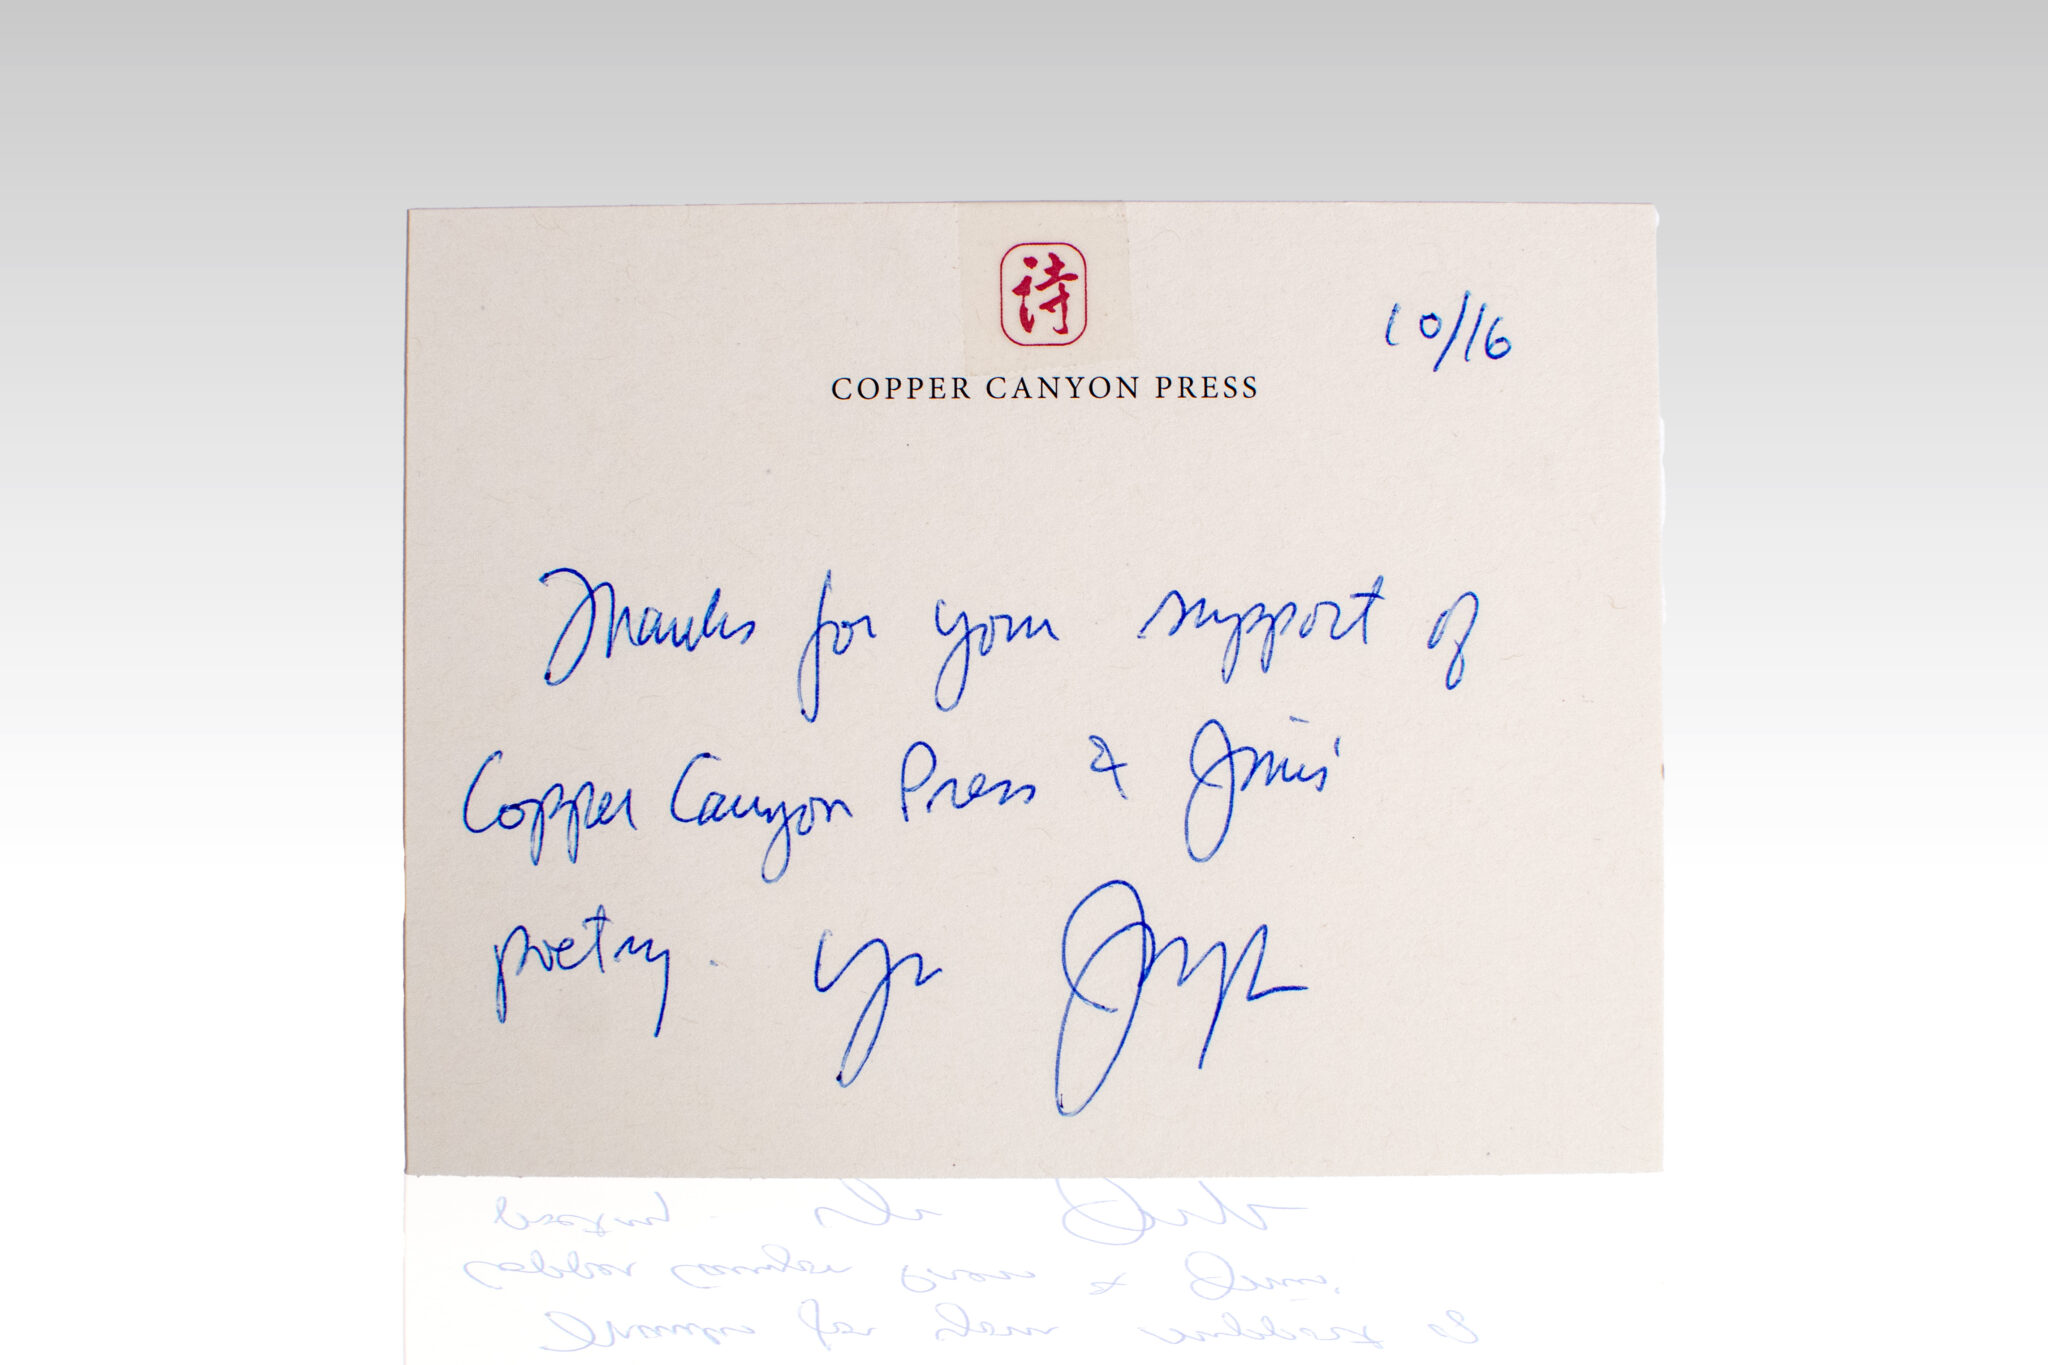 詩
10/16
COPPER CANYON PRESS
Thanks for your support of
Copper Canyon Press & Jim's
poetry.